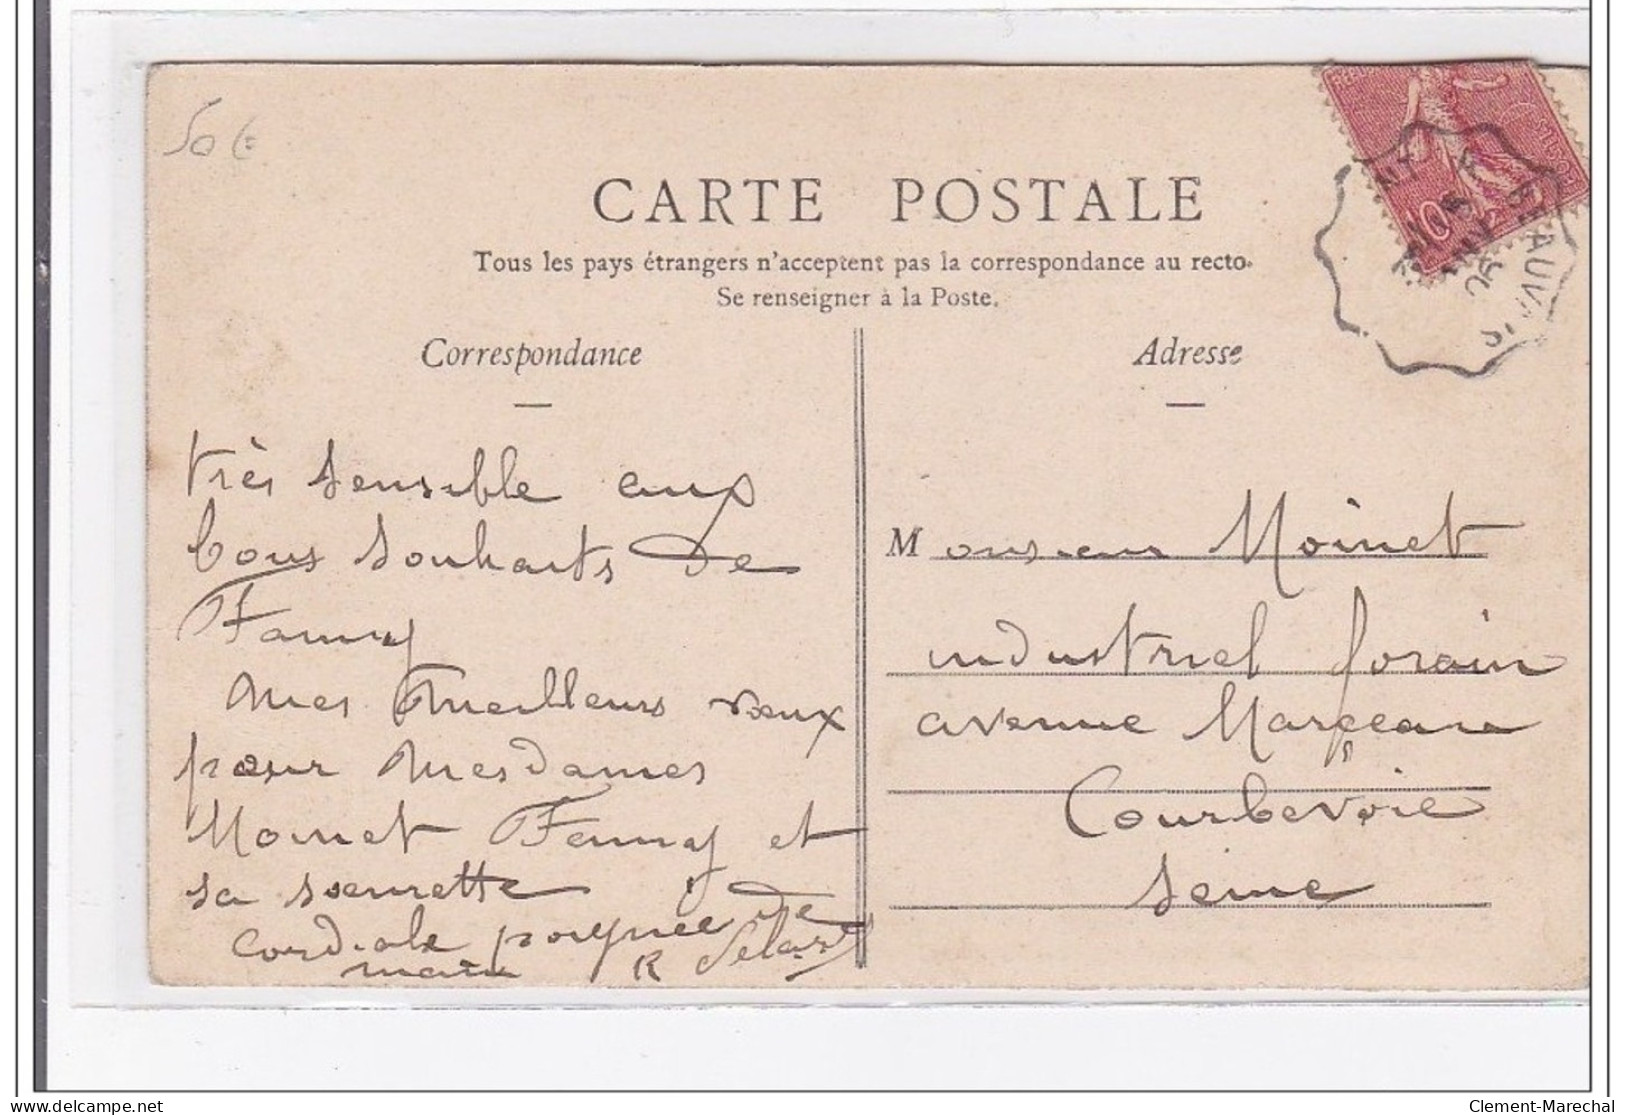 50 €
CARTE POSTALE
Tous les pays étrangers n'acceptent pas la correspondance au recto.
Se renseigner à la Poste.
Correspondance
très sensible aux
bons souhaits de
Fanny
Mes Meilleurs vœux
pour Mesdames
Moinet Fanny et
sa sœurette
cordiale poignée de
main R
Adresse
Monsieur Moinet
industriel forain
avenue Marceau
Courbevoie
Seine
10
BEAUVAIS
Clement-Marechal